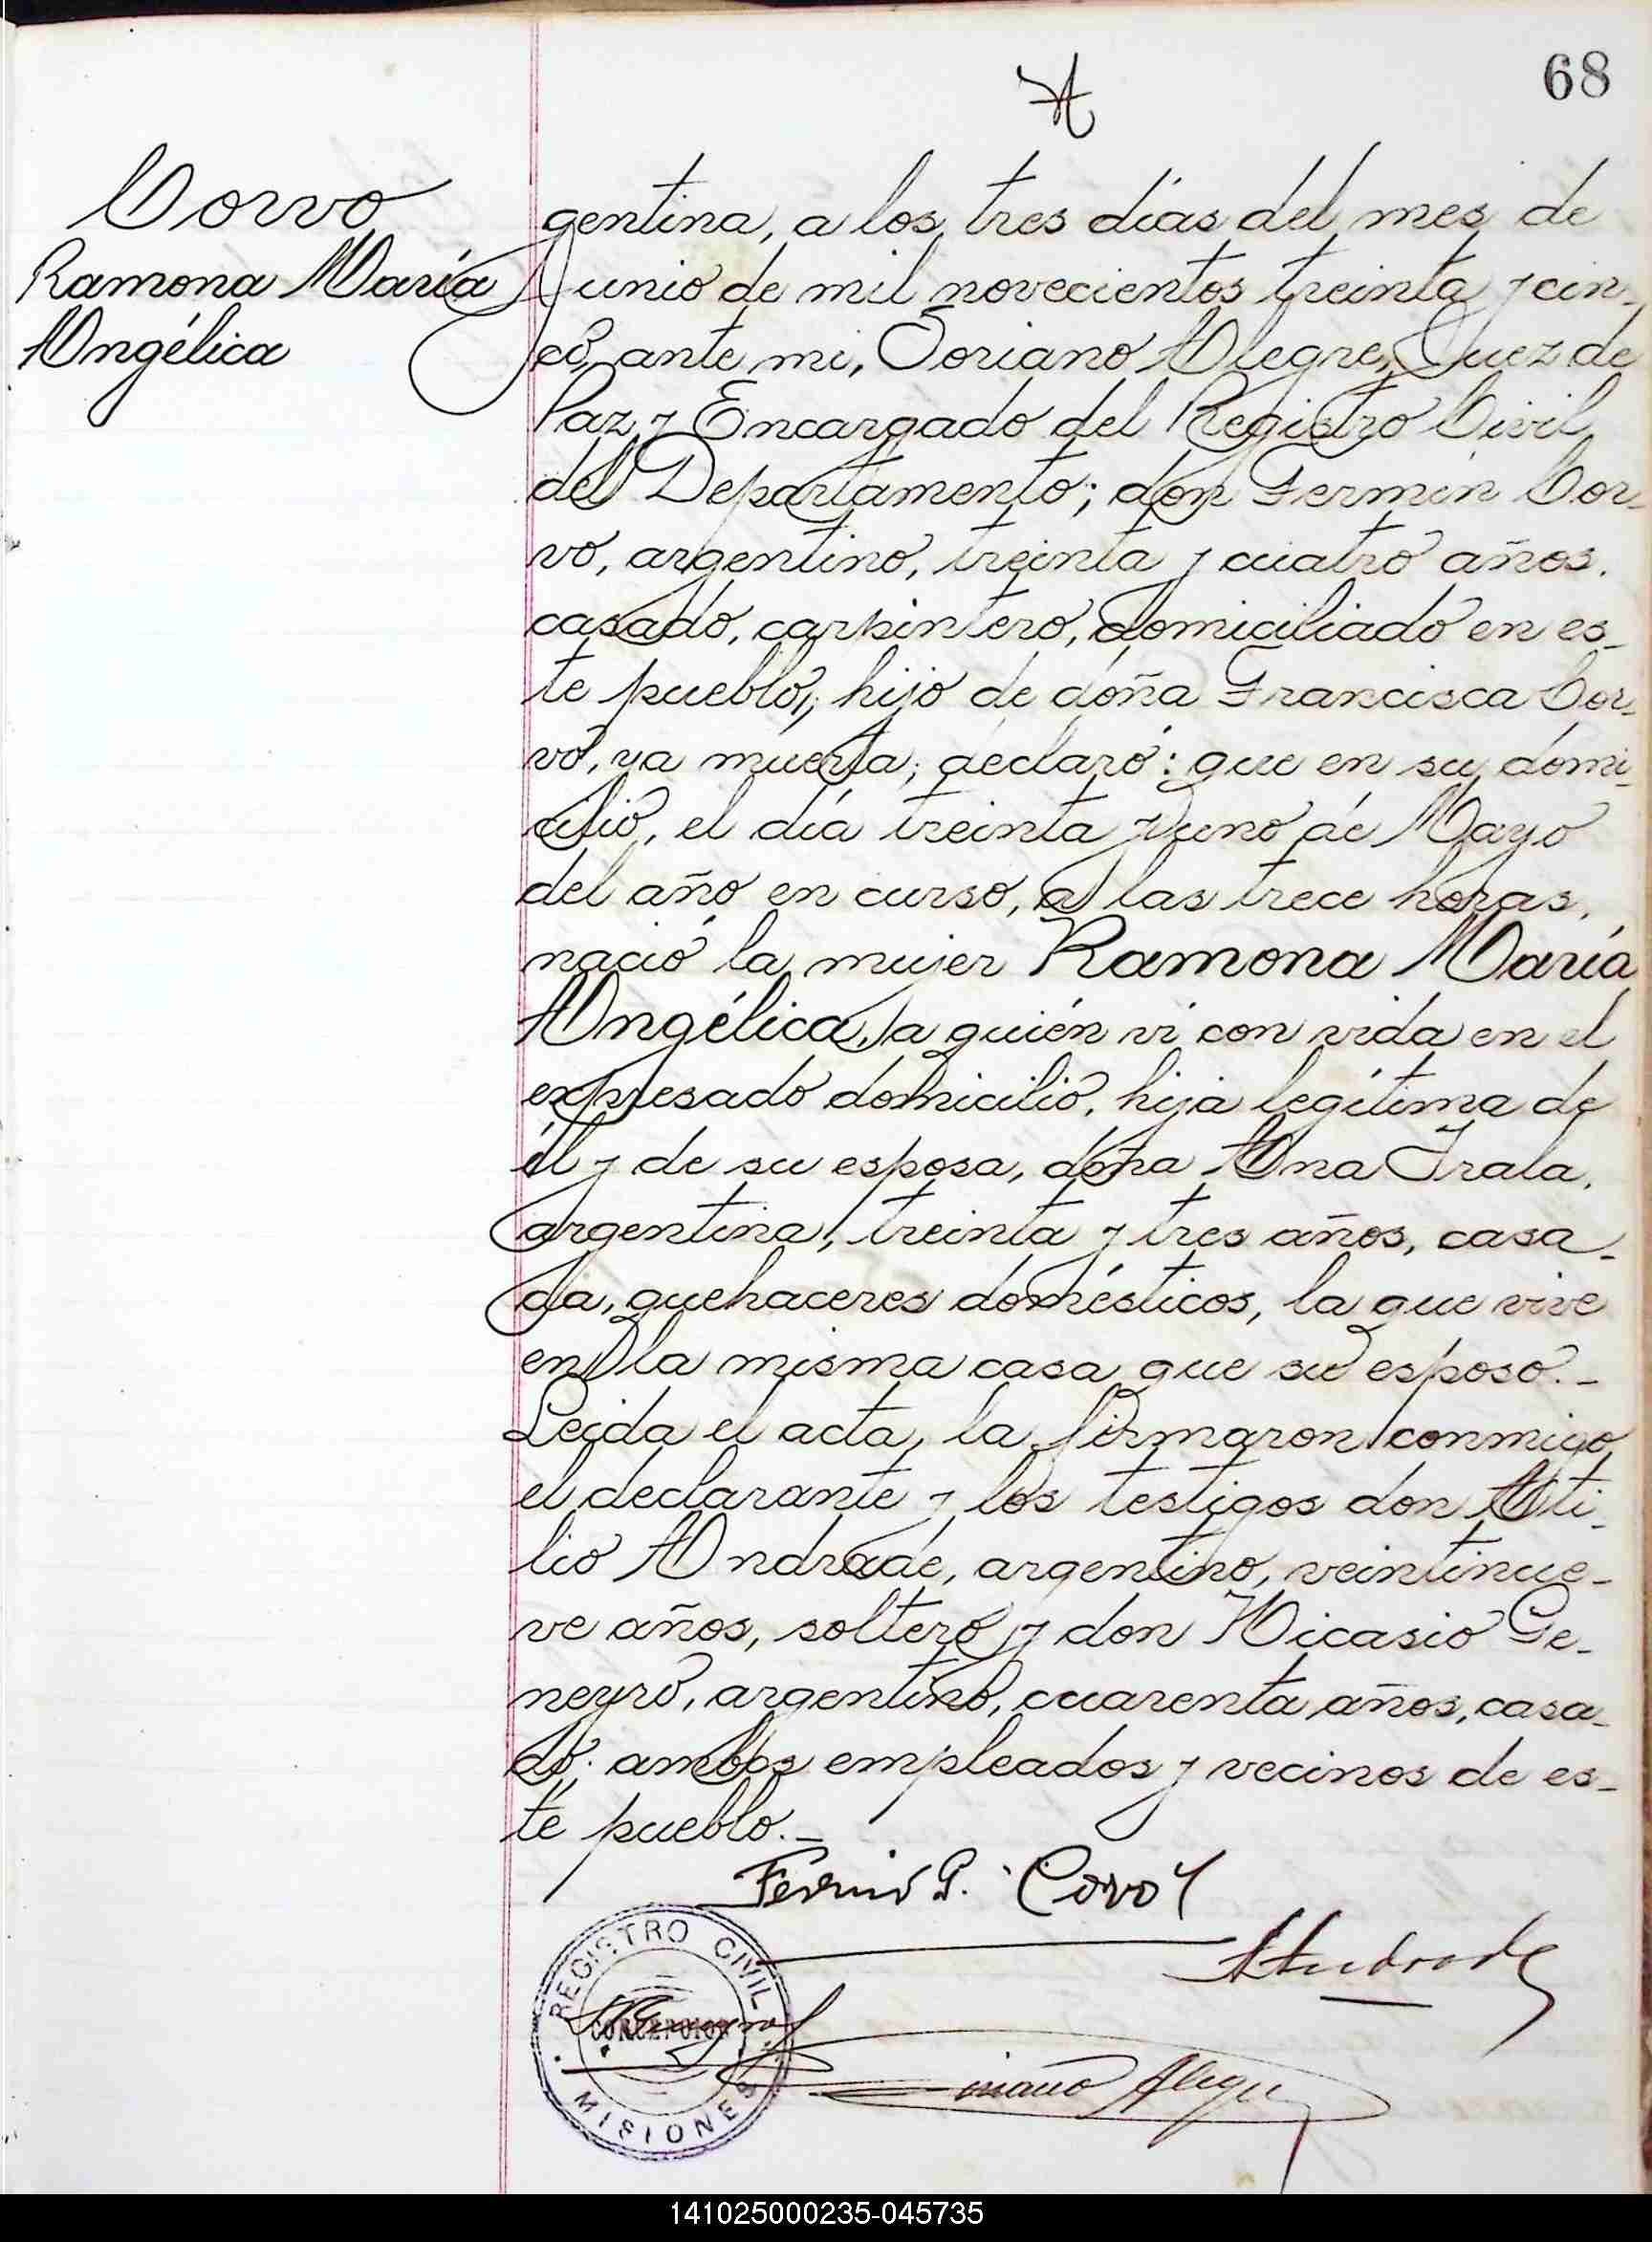 68
Corvo
Ramona María
Angélica
gentina, a los tres días del mes de
Junio de mil novecientos treinta y cin-
co, ante mi, Soriano Alegre, Juez de
Paz y Encargado del Registro Civil
del Departamento; don Fermín Cor-
vo, argentino, treinta y cuatro años,
casado, carpintero, domiciliado en es-
te pueblo, hijo de doña Francisca Cor-
vo, ya muerta; declaró: que en su domi-
cilio, el día treinta y uno de Mayo
del año en curso, a las trece horas,
nació la mujer Ramona María
Angélica, a quién vi con vida en el
expresado domicilio, hija legítima de
él y de su esposa, doña Ana Irala,
argentina, treinta y tres años, casa-
da, quehaceres domésticos, la que vive
en la misma casa que su esposo.-
Leida el acta, la firmaron conmigo,
el declarante y los testigos don Ati-
lio Andrade, argentino, veintinue-
ve años, soltero y don Nicasio Ge-
neyro, argentino, cuarenta años, casa-
do; ambos empleados y vecinos de es-
te pueblo.-
Fermin G. Corvo
AAndrade
REGISTRO CIVIL
CONCEPCION
MISIONES
Soriano Alegre
141025000235-045735